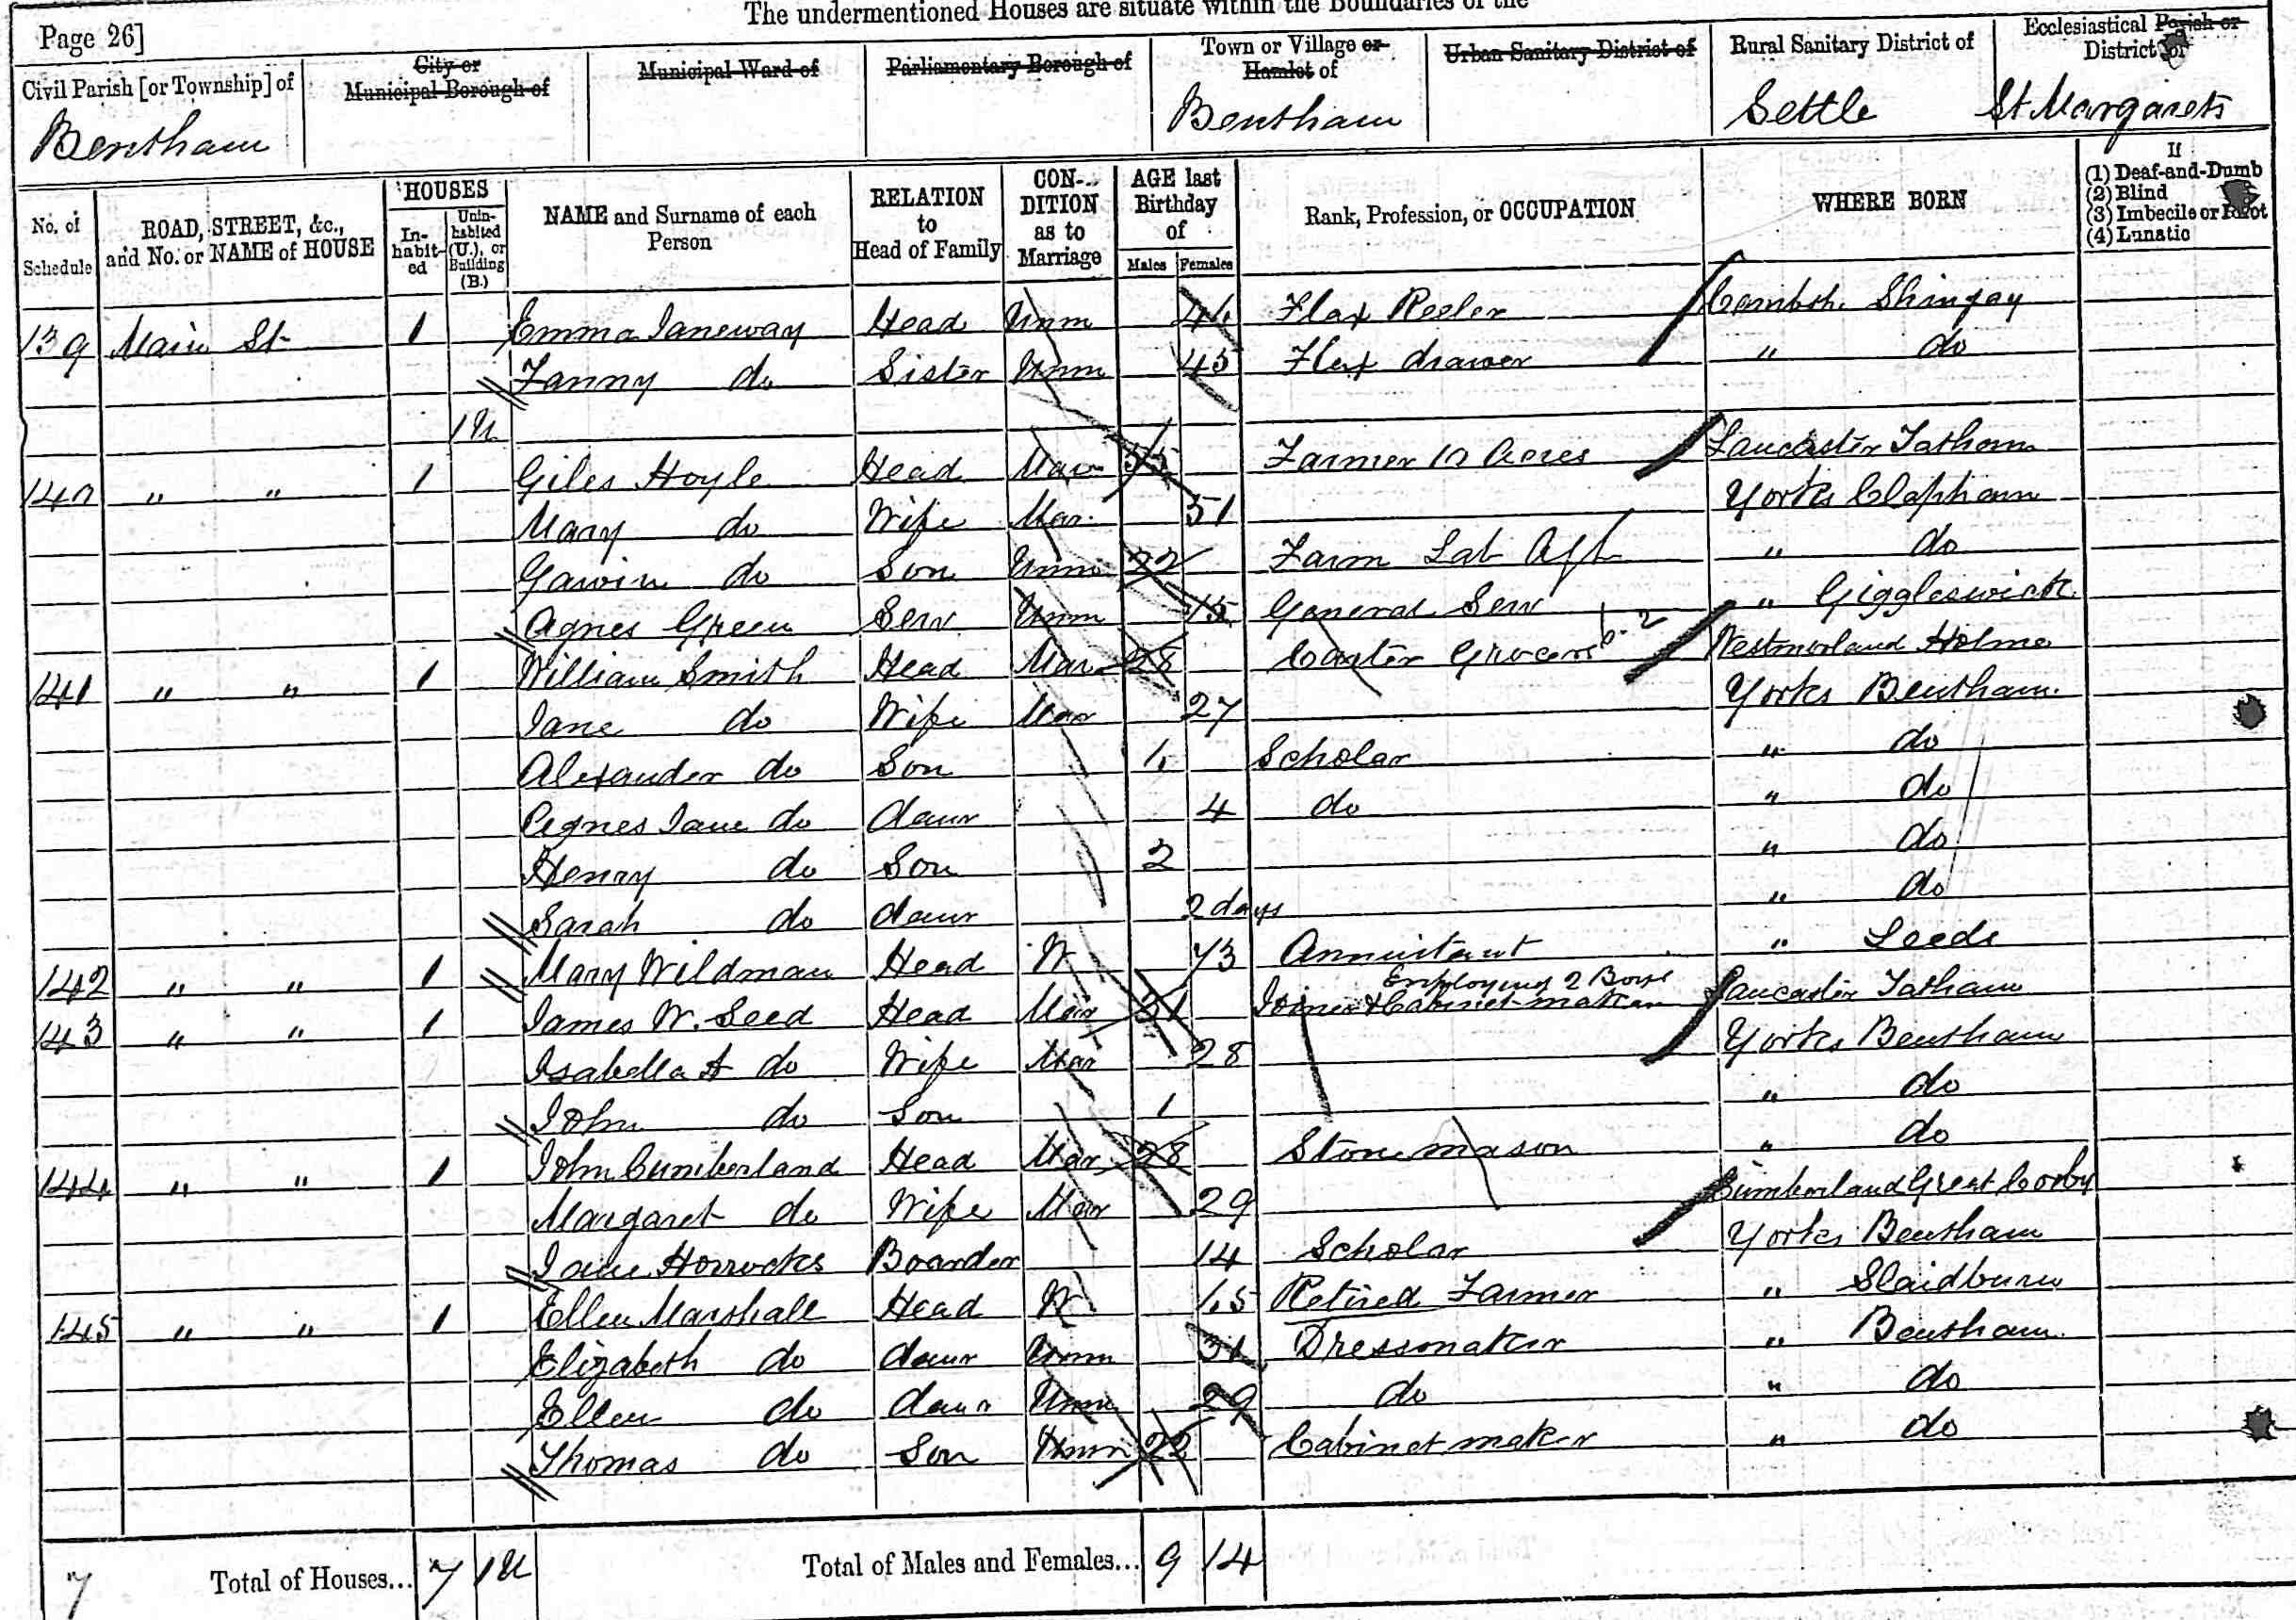 The undermentioned Houses are situate within the Boundaries of the
Page 26]
Civil Parish [or Township] of
Bentham
City or Municipal Borough of
Municipal Ward of
Parliamentary Borough of
Town or Village or Hamlet of
Bentham
Urban Sanitary District of
Rural Sanitary District of
Settle
Ecclesiastical Parish or District of
St Margarets
No. of Schedule
ROAD, STREET, &c., and No. or NAME of HOUSE
HOUSES
In-habit-ed
Unin-habited (U.), or Building (B.)
NAME and Surname of each Person
RELATION to Head of Family
CON-DITION as to Marriage
AGE last Birthday of
Males Females
Rank, Profession, or OCCUPATION
WHERE BORN
If
(1) Deaf-and-Dumb
(2) Blind
(3) Imbecile or Idiot
(4) Lunatic
139 Main St 1 Emma Janeway Head Unm Flax Reeler Cambsh. Shingay
Fanny do Sister Unm 45 Flax drawer " do
1 U
140 " " 1 Giles Hoyle Head Mar 55 Farmer 12 Acres Lancaster Tatham
Mary do Wife Mar 51 Yorks Clapham
Gawin do Son Unm 22 Farm Lab " do
Agnes Green Serv Unm 15 General Serv " Giggleswick
141 " " 1 William Smith Head Mar 28 Carter Grocers Westmorland Holme
Jane do Wife Mar 27 Yorks Bentham
Alexander do Son Scholar " do
Agnes Jane do daur 4 do " do
Henry do Son 2 " do
Sarah do daur 2 days " do
142 " " 1 Mary Wildman Head W 73 Annuitant " Leeds
143 " " 1 James W. Seed Head Mar 31 Joiner & Cabinet maker Employing 2 Boys Lancaster Tatham
Isabella A do Wife Mar 28 Yorks Bentham
John do Son 1 " do
144 " " 1 John Cumberland Head Mar 28 Stone mason " do
Margaret do Wife Mar 29 Cumberland Great Corby
Jane Horrocks Boarder 14 Scholar Yorks Bentham
145 " " 1 Ellen Marshall Head W 65 Retired Farmer " Slaidburn
Elizabeth do daur Unm 31 Dressmaker " Bentham
Ellen do daur Unm 29 do " do
Thomas do Son Unm 22 Cabinet maker " do
7 Total of Houses... 7 1U Total of Males and Females... 9 14